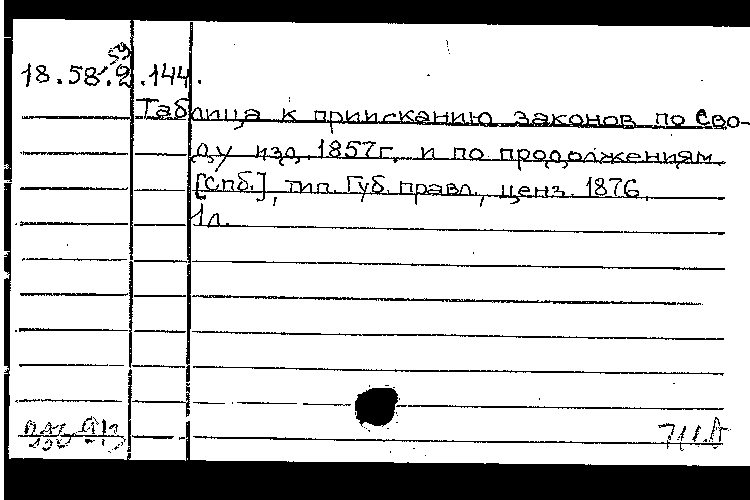 59
18.58.2.144.
Таблица к приисканию законов по Сво-
ду изд. 1857г. и по продолжениям.
[Спб.], тип. Губ. правл., ценз. 1876.
1 л.